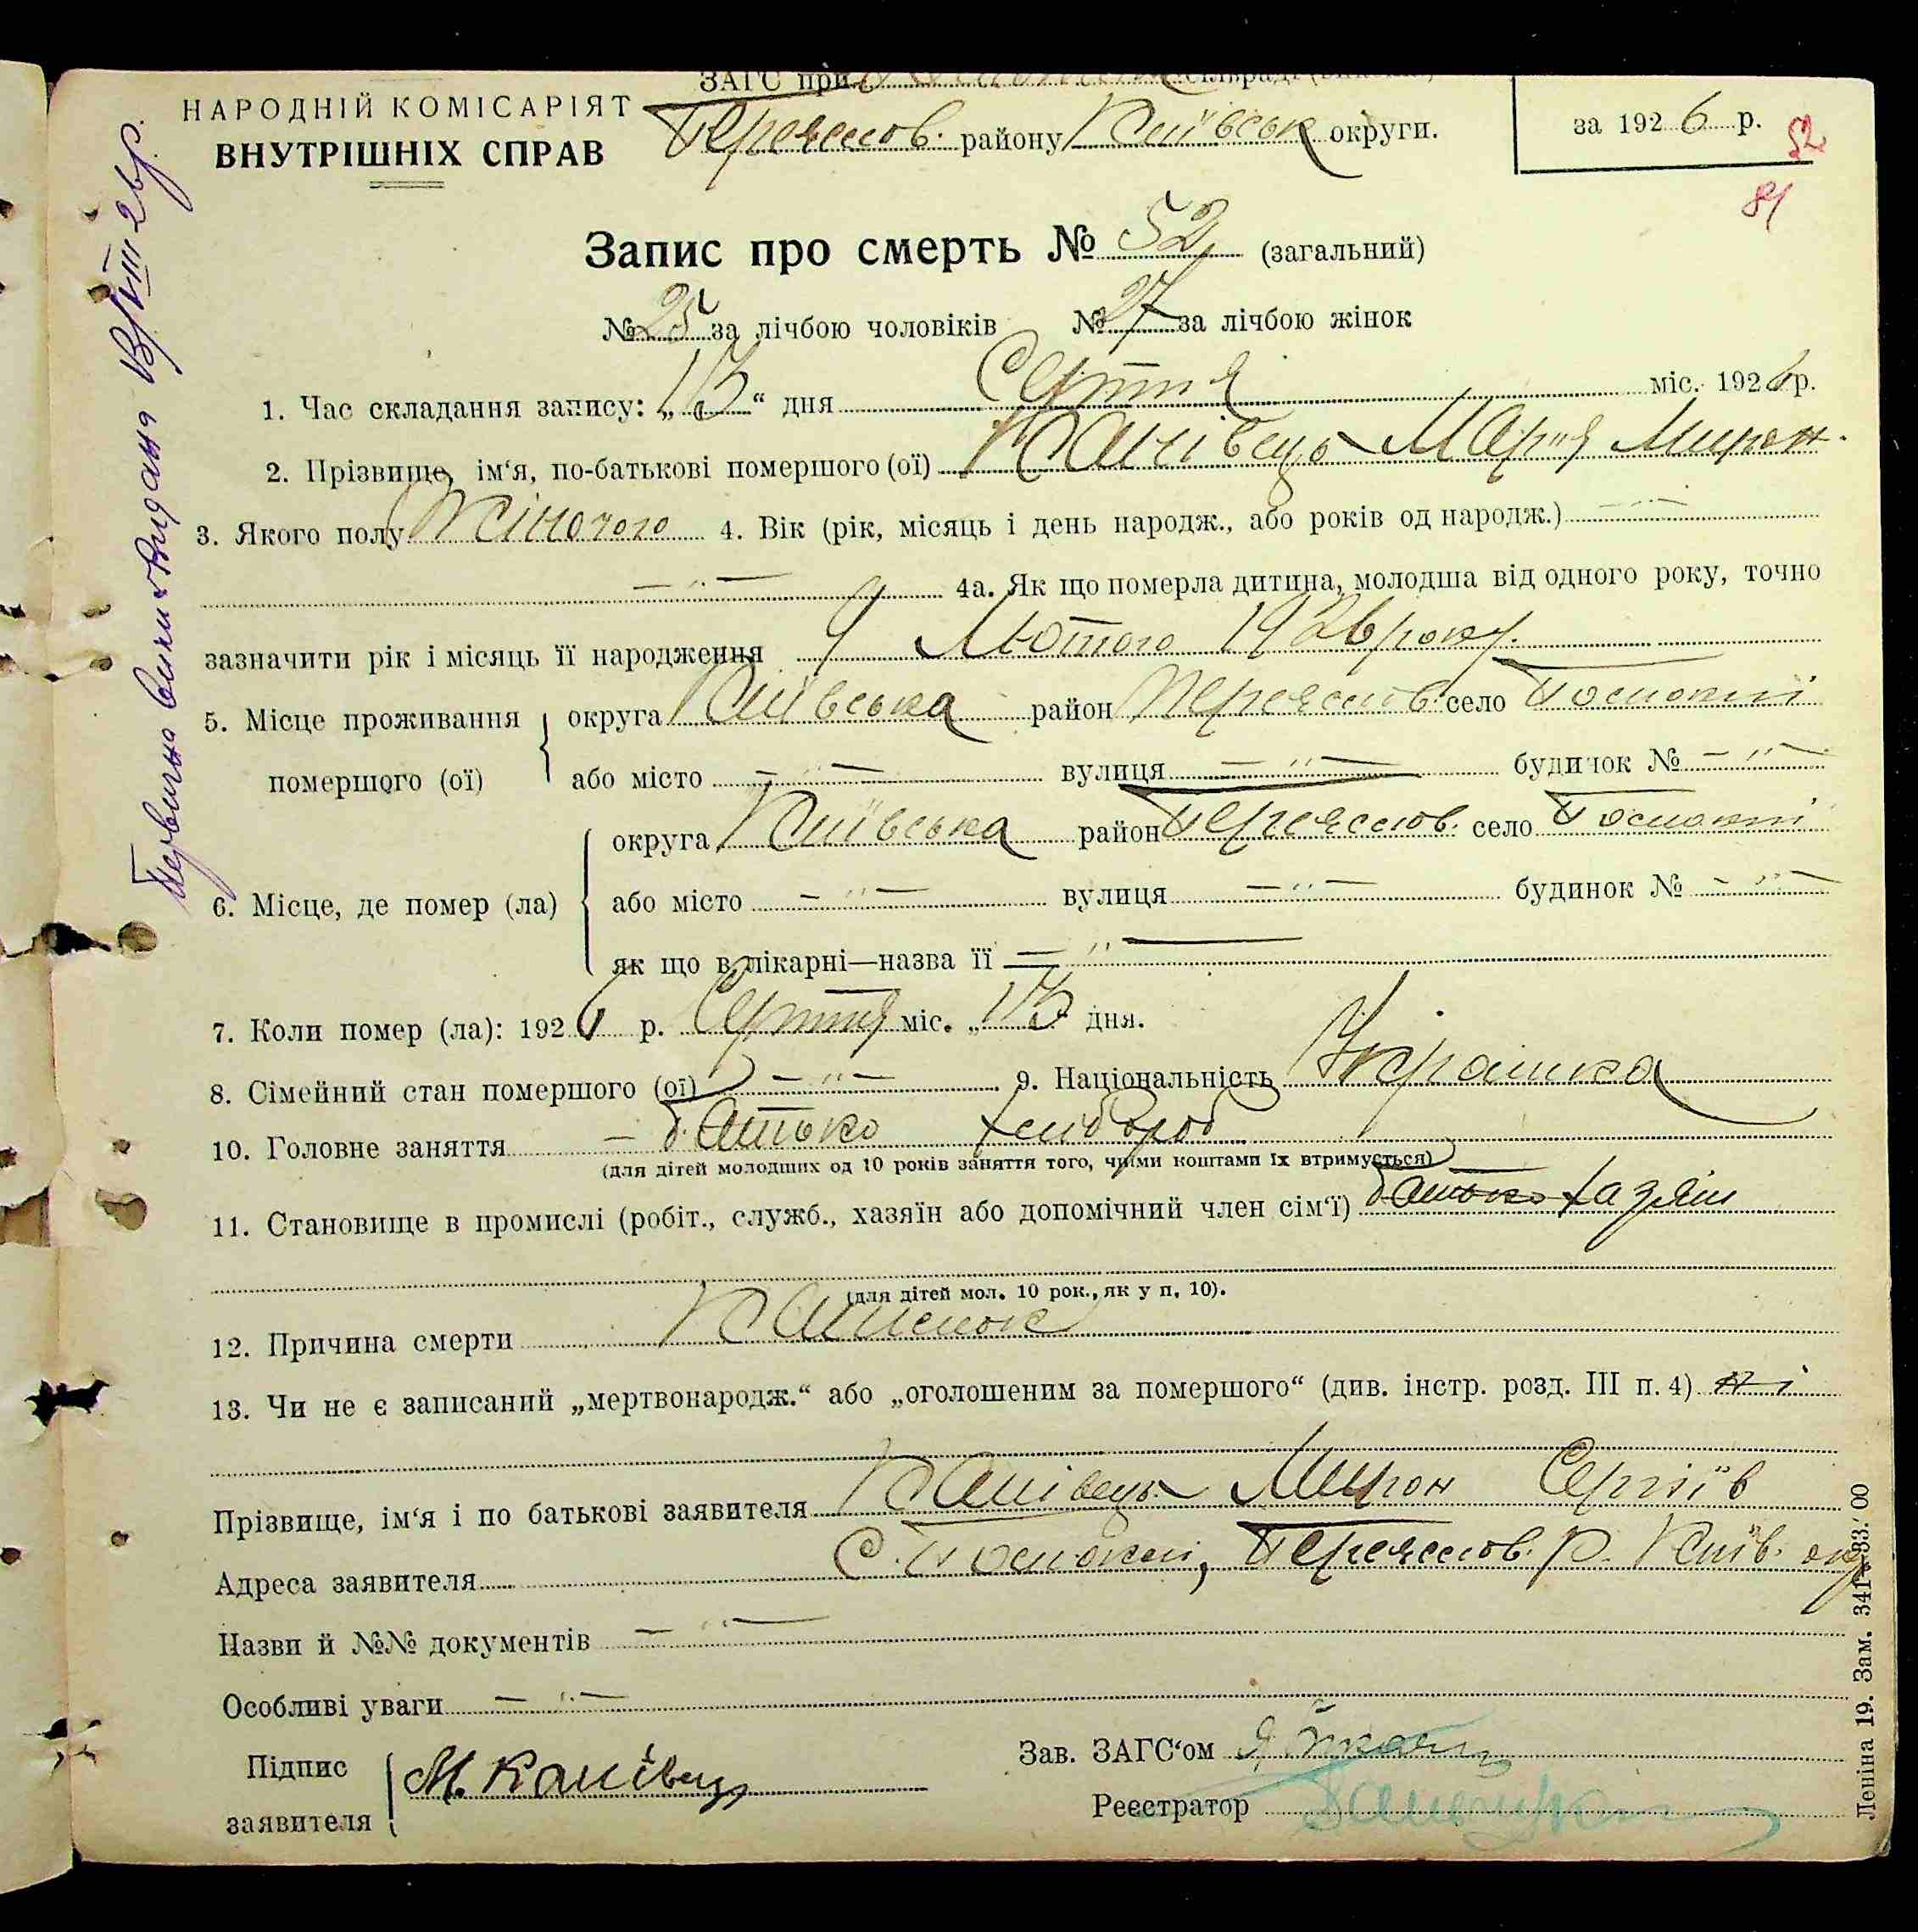 ЗАГС при
НАРОДНІЙ КОМІСАРІЯТ
ВНУТРІШНІХ СПРАВ
Переяслов. району Київськ округи.
за 1926 р.
52
81
Запис про смерть № 52 (загальний)
№ 25 за лічбою чоловіків № 27 за лічбою жінок
1. Час складання запису: „13“ дня Серпня міс. 1926 р.
2. Прізвище, ім‘я, по-батькові помершого (ої) Канівець Марія Мирон.
3. Якого полу Жіночого 4. Вік (рік, місяць і день народж., або років од народж.) — " —
— " — 4а. Як що померла дитина, молодша від одного року, точно
зазначити рік і місяць її народження 9 Лютого 1926 року.
5. Місце проживання помершого (ої) округа Київська район Переяслов. село
або місто — " — вулиця — " — будинок № — " —
6. Місце, де помер (ла) округа Київська район Переяслов. село
або місто — " — вулиця — " — будинок № — " —
як що в лікарні—назва її — " —
7. Коли помер (ла): 1926 р. Серпня міс. „13 дня.
8. Сімейний стан помершого (ої) — " — 9. Національність Українка
10. Головне заняття — батько хлібороб
(для дітей молодших од 10 років заняття того, чиїми коштами їх втримується)
11. Становище в промислі (робіт., служб., хазяїн або допомічний член сім‘ї) батько хазяїн
(для дітей мол. 10 рок., як у п. 10).
12. Причина смерти Кашлюк
13. Чи не є записаний „мертвонародж.“ або „оголошеним за помершого“ (див. інстр. розд. III п. 4) ні
Прізвище, ім‘я і по батькові заявителя Канівець Мирон Сергіїв
Адреса заявителя С. Переяслов. р. Київ. окр
Назви й №№ документів — " —
Особливі уваги — " —
Підпис заявителя М. Канівець
Зав. ЗАГС‘ом
Реєстратор
Леніна 19. Зам. 341